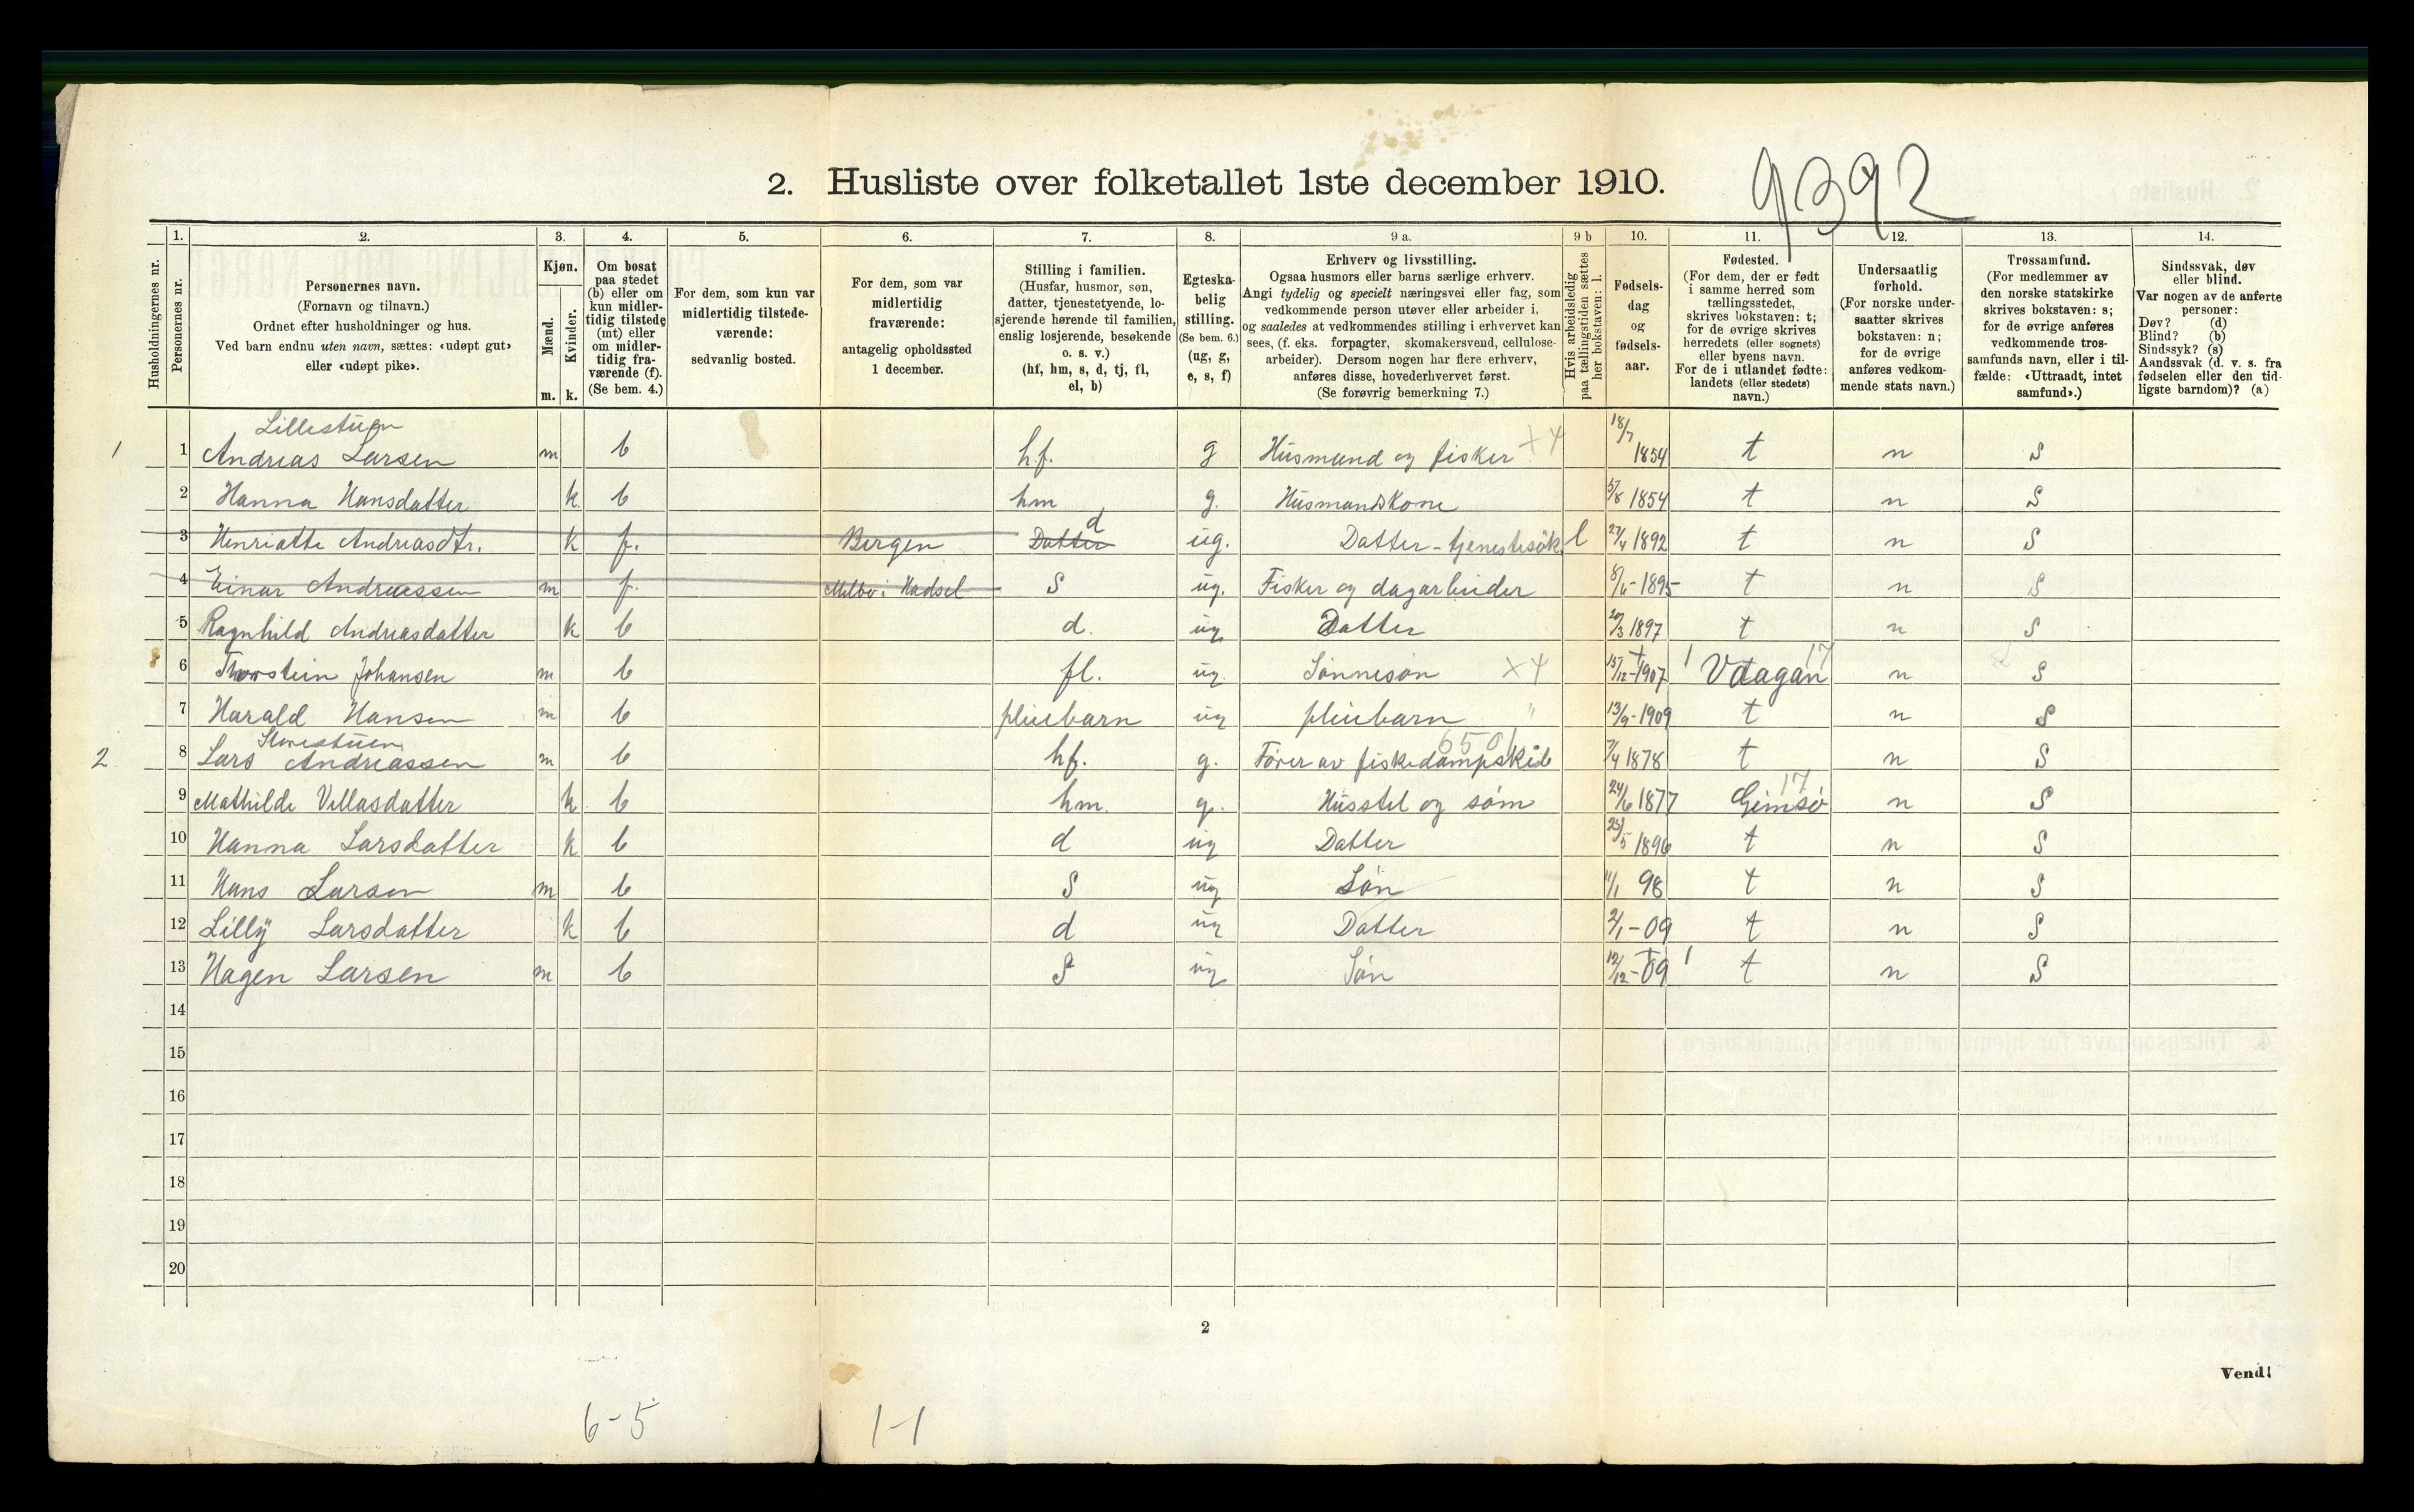 2. Husliste over folketallet 1ste december 1910.
9392
Husholdningernes nr.
1. Personernes nr.
2. Personernes navn. (Fornavn og tilnavn.) Ordnet efter husholdninger og hus. Ved barn endnu uten navn, sættes: «udøpt gut» eller «udøpt pike».
3. Kjøn. Mænd. m. Kvinder. k.
4. Om bosat paa stedet (b) eller om kun midlertidig tilstede (mt) eller om midlertidig fraværende (f). (Se bem. 4.)
5. For dem, som kun var midlertidig tilstedeværende: sedvanlig bosted.
6. For dem, som var midlertidig fraværende: antagelig opholdssted 1 december.
7. Stilling i familien. (Husfar, husmor, søn, datter, tjenestetyende, losjerende hørende til familien, enslig losjerende, besøkende o. s. v.) (hf, hm, s, d, tj, fl, el, b)
8. Egteskabelig stilling. (Se bem. 6.) (ug, g, e, s, f)
9 a. Erhverv og livsstilling. Ogsaa husmors eller barns særlige erhverv. Angi tydelig og specielt næringsvei eller fag, som vedkommende person utøver eller arbeider i, og saaledes at vedkommendes stilling i erhvervet kan sees, (f. eks. forpagter, skomakersvend, cellulosearbeider). Dersom nogen har flere erhverv, anføres disse, hovederhvervet først. (Se forøvrig bemerkning 7.)
9 b Hvis arbeidsledig paa tællingstiden sættes her bokstaven: l.
10. Fødselsdag og fødselsaar.
11. Fødested. (For dem, der er født i samme herred som tællingsstedet, skrives bokstaven: t; for de øvrige skrives herredets (eller sognets) eller byens navn. For de i utlandet fødte: landets (eller stedets) navn.)
12. Undersaatlig forhold. (For norske undersaatter skrives bokstaven: n; for de øvrige anføres vedkommende stats navn.)
13. Trossamfund. (For medlemmer av den norske statskirke skrives bokstaven: s; for de øvrige anføres vedkommende trossamfunds navn, eller i tilfælde: «Uttraadt, intet samfund».)
14. Sindssvak, døv eller blind. Var nogen av de anførte personer: Døv? (d) Blind? (b) Sindssyk? (s) Aandssvak (d. v. s. fra fødselen eller den tidligste barndom)? (a)
Lillestuen
1 1 Andreas Larsen m b hf. g Husmand og fisker X4 18/7 1854 t n S
2 Hanna Hansdatter k b hm g. Husmandskone 5/8 1854 t n S
3 Henriatte Andreasdtr. k f. Bergen Datter d ug. Datter - tjenestesøk. l 27/4 1892 t n S
4 Einar Andreassen m f. Melbo i Hadsel S ug. Fisker og dagarbeider 8/6 - 1895 t n S
5 Ragnhild Andreasdatter k b d. ug Datter 20/3 1897 t n S
6 Thorstein Johansen m b fl. ug. Sønnesøn X4 15/12 - 1907 1 Vaagan 17 n S
7 Harald Hansen m b pleiebarn ug pleiebarn " 13/9 - 1909 t n S
Storestuen
2 8 Lars Andreassen m b hf. g. Fører av fiskedampskib 6501 7/4 1878 t n S
9 Mathilde Villasdatter k b hm. g. Husstel og søm 24/6 1877 Gimsø 17 n S
10 Hanna Larsdatter k b d ug Datter 25/5 1896 t n S
11 Hans Larsen m b S ug Søn 11/1 98 t n S
12 Lilly Larsdatter k b d ug Datter 2/1 - 09 t n S
13 Hagen Larsen m b S ug Søn 12/12 - 09 1 t n S
14
15
16
17
18
19
20
2
Vend!
6-5
1-1